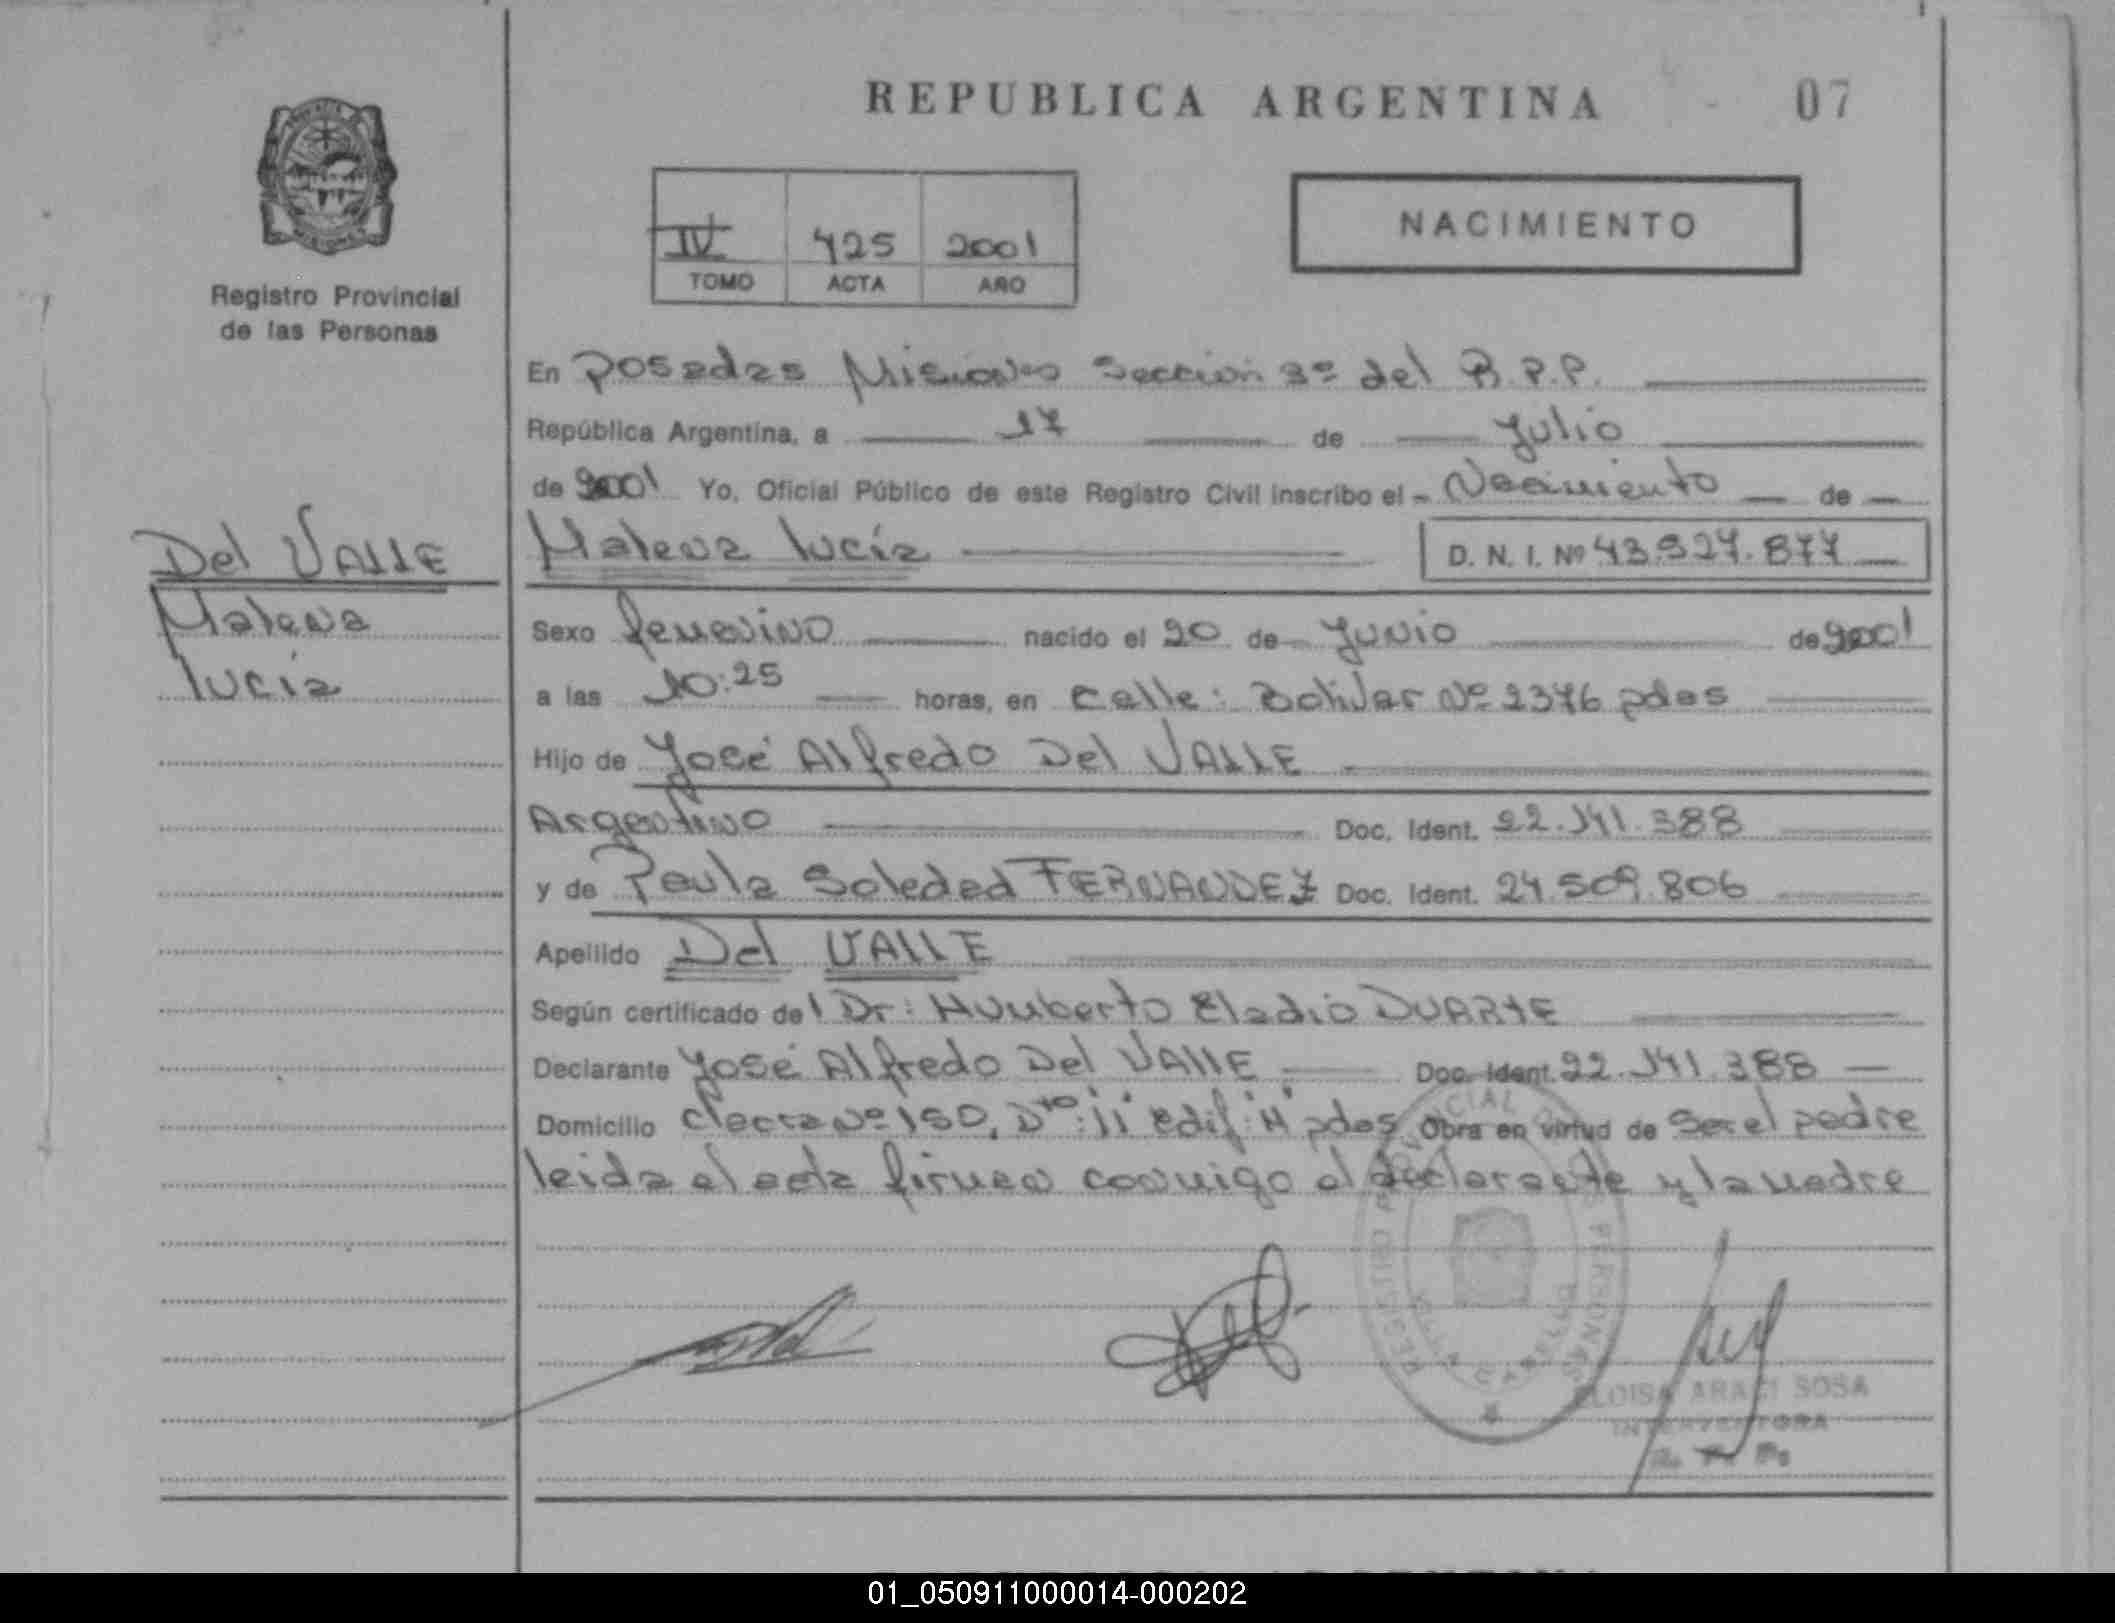 REPUBLICA ARGENTINA
07
IV 425 2001
TOMO ACTA AÑO
NACIMIENTO
Registro Provincial
de las Personas
MISIONES
En Posadas Misiones Sección 3º del R.P.P.
República Argentina, a 17 de Julio
de 2001 Yo, Oficial Público de este Registro Civil inscribo el Nacimiento de
Malena Lucía D. N. I. Nº 43.527.877
Del VALLE
Malena
Lucía
Sexo femenino nacido el 20 de Junio de 2001
a las 10:25 horas, en Calle: Bolivar Nº 2376 pdas
Hijo de José Alfredo Del VALLE
Argentino Doc. Ident. 22.141.388
y de Paula Soledad FERNANDEZ Doc. Ident. 24.509.806
Apellido Del VALLE
Según certificado del Dr: Humberto Eladio DUARTE
Declarante José Alfredo Del VALLE Doc. Ident. 22.141.388
Domicilio chacra Nº 150, Dto: 11 edif: "H" pdas Obra en virtud de ser el padre
leida el acta firman conmigo el declarante y la madre
REGISTRO PROVINCIAL DE LAS PERSONAS
VILLA CABELLO
ELOISA ARACI SOSA
INTERVENTORA
01_050911000014-000202